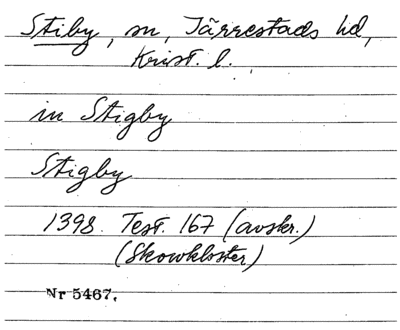 Stiby, sn, Järrestads hd,
Krist. l.
in Stigby
Stigby
1398. Test. 167 (avskr.)
(Skowkloster)
Nr 5467.